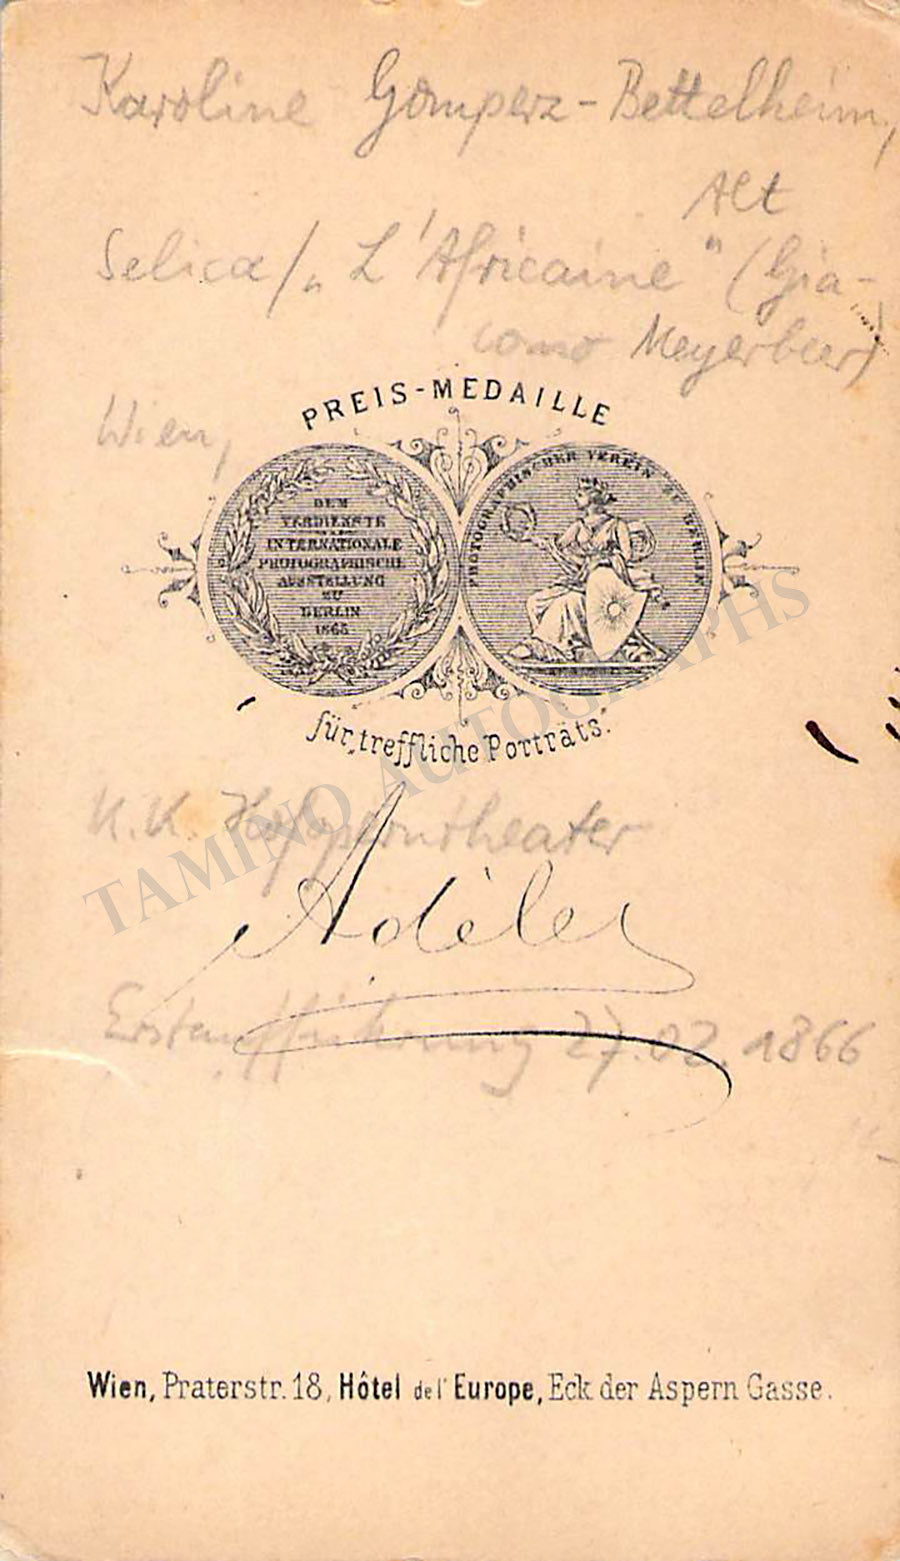 Karoline Gomperz-Bettelheim,
Alt
Selica/„L'Africaine" (Gia-
como Meyerbeer)
Wien,
PREIS-MEDAILLE
DEM
VERDIENSTE
INTERNATIONALE
PHOTOGRAPHISCHE
AUSSTELLUNG
ZU
BERLIN
1865
PHOTOGRAPHISCHER VEREIN ZU BERLIN
für treffliche Porträts.
K.K. Hofoperntheater
TAMINO AUTOGRAPHS
Adèle
Erstaufführung 27.02.1866
Wien, Praterstr. 18, Hôtel de l' Europe, Eck der Aspern Gasse.